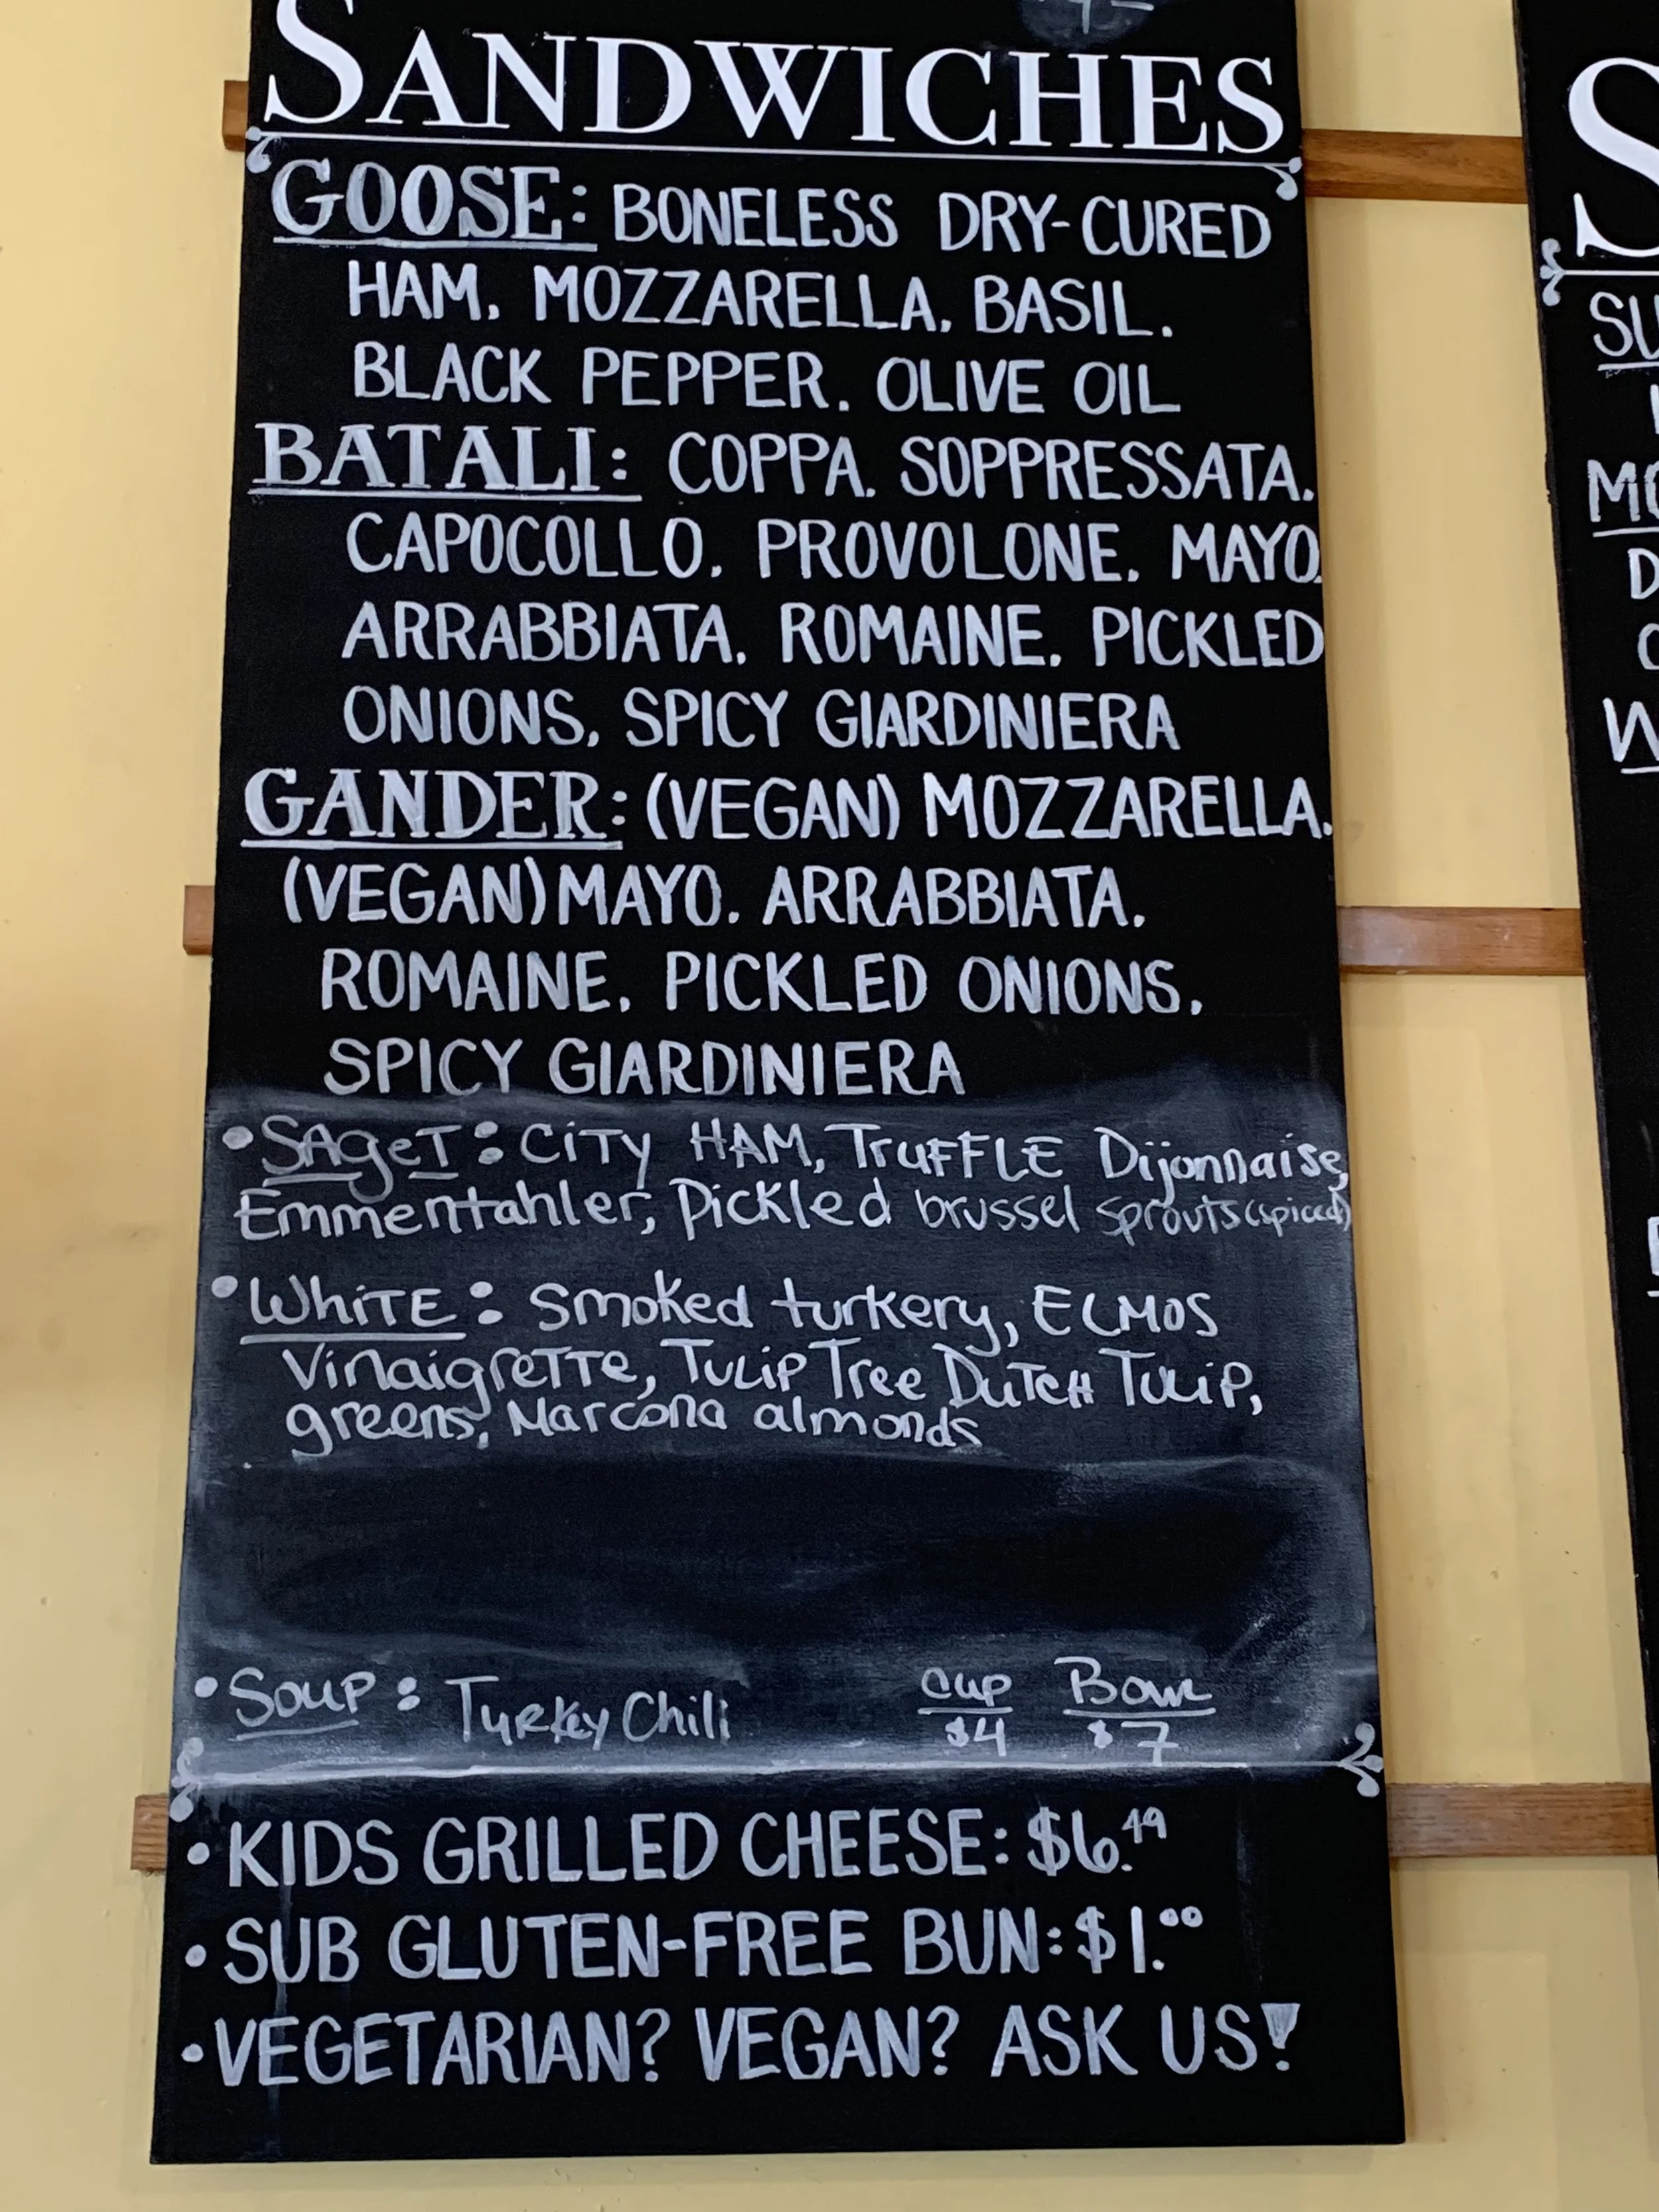 SANDWICHES
GOOSE: BONELESS DRY-CURED
HAM, MOZZARELLA, BASIL,
BLACK PEPPER, OLIVE OIL
BATALI: COPPA, SOPPRESSATA,
CAPOCOLLO, PROVOLONE, MAYO,
ARRABBIATA, ROMAINE, PICKLED
ONIONS, SPICY GIARDINIERA
GANDER: (VEGAN) MOZZARELLA,
(VEGAN) MAYO, ARRABBIATA,
ROMAINE, PICKLED ONIONS,
SPICY GIARDINIERA
•SAgeT: CiTy HAM, TruFFLE Dijonnaise,
Emmentahler, Pickled brussel sprouts (spiced)
•WhiTE: Smoked turkery, ELMOS
VinaigreTTe, TuLip Tree DuTcH TuLiP,
greens, Marcona almonds
•Soup: Turkey Chili
Cup Bowl
$4 $7
•KIDS GRILLED CHEESE: $6.49
•SUB GLUTEN-FREE BUN: $1.00
•VEGETARIAN? VEGAN? ASK US!
S
SU
MO
D
W